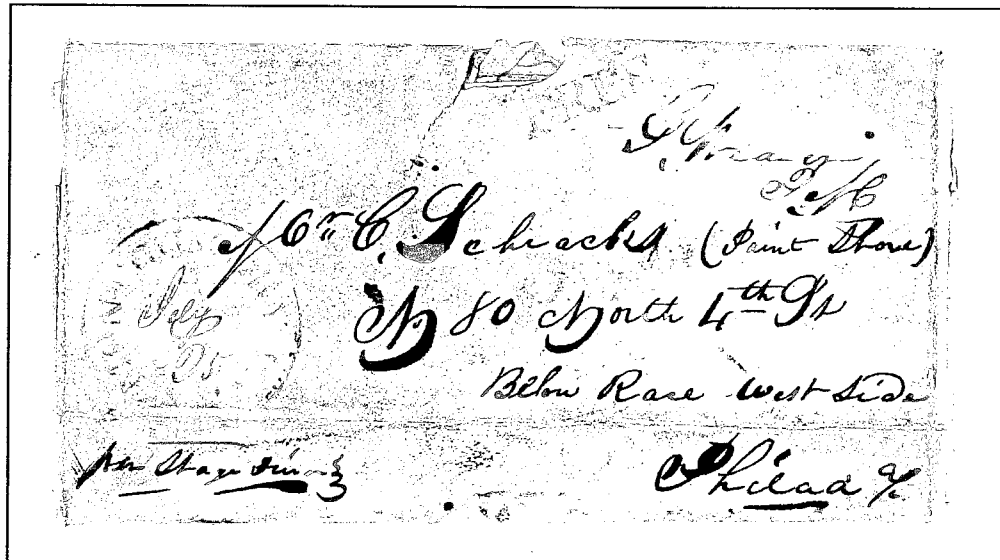 P. M.
Mr. C. Schracks (Paint Store)
No 80 North 4th St
Below Race West Side
Philad a/
July
25
per Stage